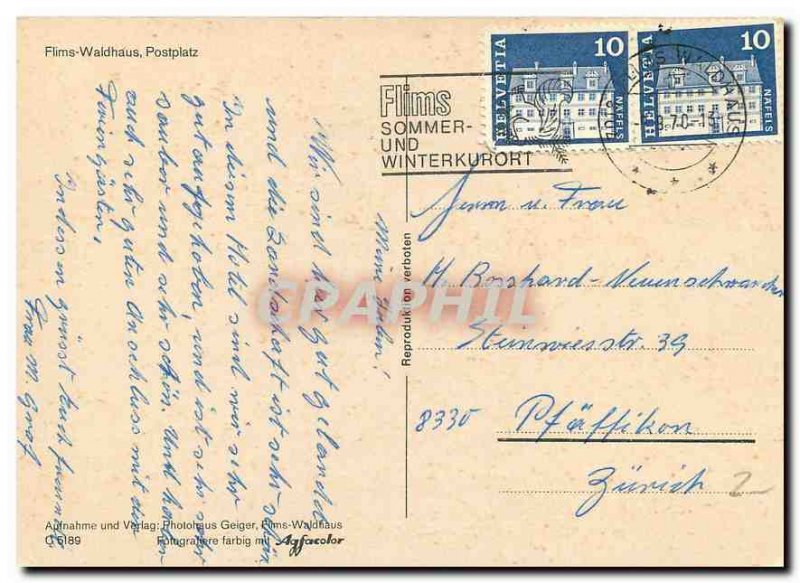 Flims-Waldhaus, Postplatz
HELVETIA 10 NÄFELS
HELVETIA 10 NÄFELS
Flims
SOMMER-
UND
WINTERKURORT
WALDHAUS
9.70-13
Meine Lieben!
Wir sind hier gut gelandet
und die Landschaft ist sehr schön
In diesem Hotel sind wir sehr
gut aufgehoben, und ist es sehr
sauber und sehr schön. Und haben
auch sehr guten Anschluss mit den
Feriengästen,
Indessen grüsst Euch
Frau M. Graf
Reproduktion verboten
Herrn u. Frau
H. Bosshard-Neuenschwander
Steinwiesstr. 39
8330 Pfäffikon
Zürich
2
CPAPHIL
Aufnahme und Verlag: Photohaus Geiger, Flims-Waldhaus
C 5189 Fotografiere farbig mit Agfacolor